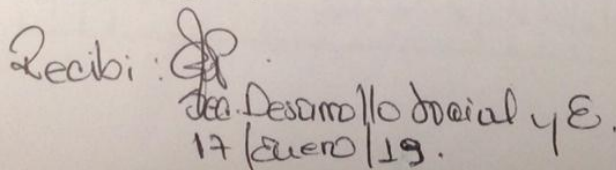 Recibi:
Sec. Desarrollo Social y E.
17/Enero/19.